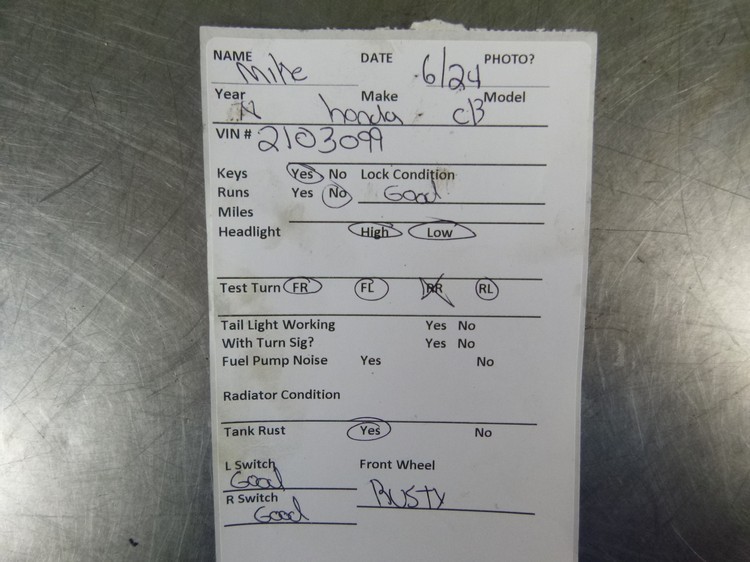 NAME Mike DATE 6/24 PHOTO?
Year Make Model
honda CB
VIN # 2103099
Keys Yes No Lock Condition
Runs Yes No Good
Miles
Headlight High Low
Test Turn FR FL RR RL
Tail Light Working Yes No
With Turn Sig? Yes No
Fuel Pump Noise Yes No
Radiator Condition
Tank Rust Yes No
L Switch Front Wheel
Good
R Switch Rusty
Good